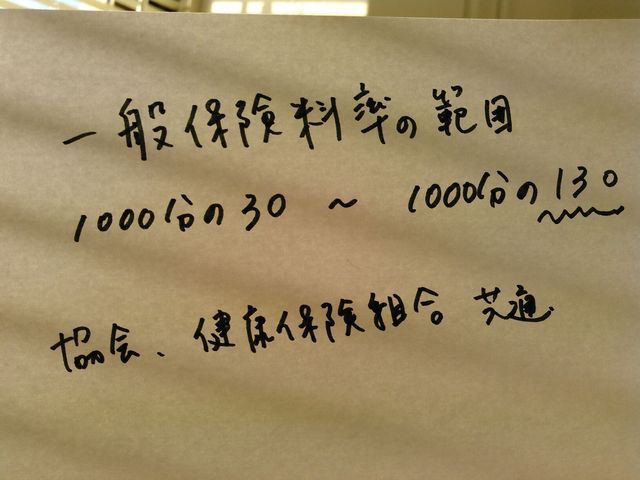 一般保険料率の範囲
1000分の30 ～ 1000分の130
協会、健康保険組合 共通